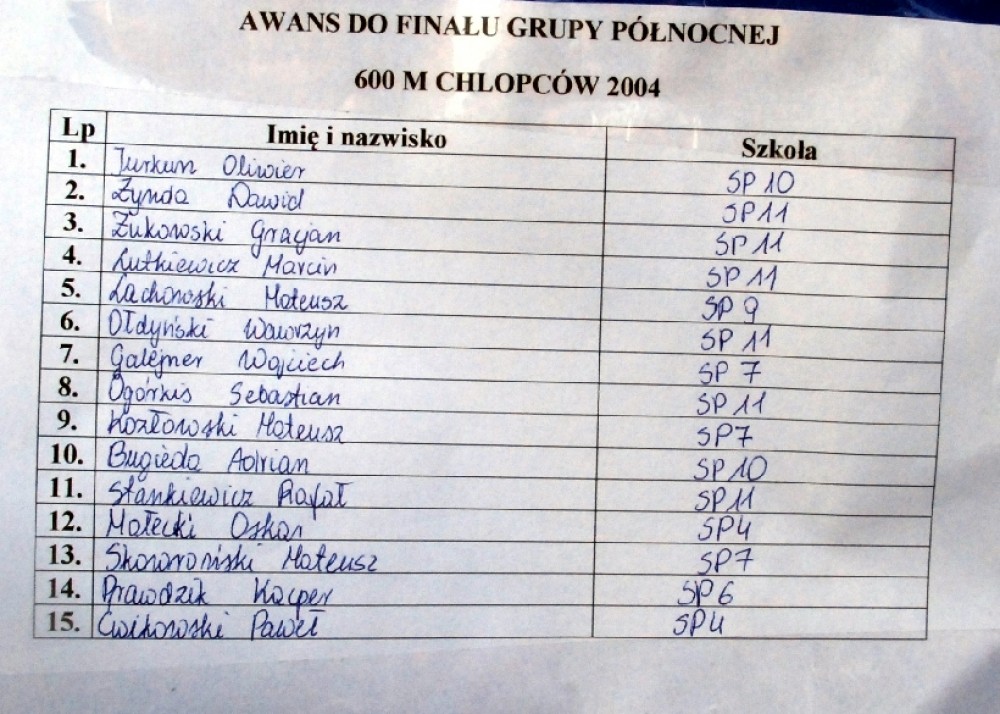 AWANS DO FINAŁU GRUPY PÓŁNOCNEJ
600 M CHLOPCÓW 2004
Lp Imię i nazwisko Szkoła
1. Jurkun Oliwier SP 10
2. Żynda Dawid SP11
3. Żukowski Gracjan SP 11
4. Lutkiewicz Marcin SP 11
5. Lachowski Mateusz SP 9
6. Ołdyński Wawrzyn SP 11
7. Galejner Wojciech SP 7
8. Ogórkis Sebastian SP 11
9. Kozłowski Mateusz SP7
10. Bugieda Adrian SP10
11. Stankiewicz Rafał SP11
12. Małecki Oskar SP4
13. Skowroński Mateusz SP7
14. Prawdzik Kacper SP 6
15. Ćwikowski Paweł SP4